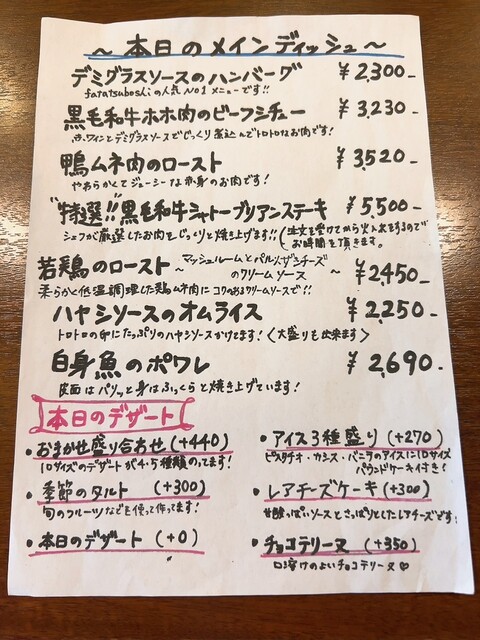 ～本日のメインディッシュ～
デミグラスソースのハンバーグ ¥2,300-
futatsuboshiの人気No1メニューです!!
黒毛和牛ホホ肉のビーフシチュー ¥3,230-
赤ワインとデミグラスソースでじっくり煮込んでトロトロなお肉です!
鴨ムネ肉のロースト ¥3,520-
やわらかくてジューシーな赤身のお肉です!
"特選!!"黒毛和牛シャトーブリアンステーキ ¥5,500-
シェフが厳選したお肉をじっくりと焼き上げます!! (注文を受けてから火入れをするので
お時間を頂きます。
若鶏のロースト ～マッシュルームとパルメザンチーズ
のクリームソース～ ¥2,450-
柔らかく低温調理した鶏ムネ肉にコクのあるクリームソースで!!
ハヤシソースのオムライス ¥2,250-
トロトロの卵にたっぷりのハヤシソースかけてます!〈大盛りも出来ます〉
白身魚のポワレ ¥2,690-
皮面はパリッと身はふっくらと焼き上げています!
本日のデザート
・おまかせ盛り合わせ(+440)
プチサイズのデザートが4・5種類のってます!
・季節のタルト (+300)
旬のフルーツなどを使って作ってます!
・本日のデザート (+0)
・アイス3種盛り(+270)
ピスタチオ・カシス・バニラのアイスにプチサイズ
パウンドケーキ付き!
・レアチーズケーキ(+300)
甘酸っぱいソースとさっぱりとしたレアチーズです!
・チョコテリーヌ (+350)
口溶けのよいチョコテリーヌ♡